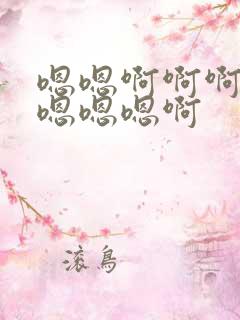 嗯嗯啊啊啊
嗯嗯嗯啊
滚鸟